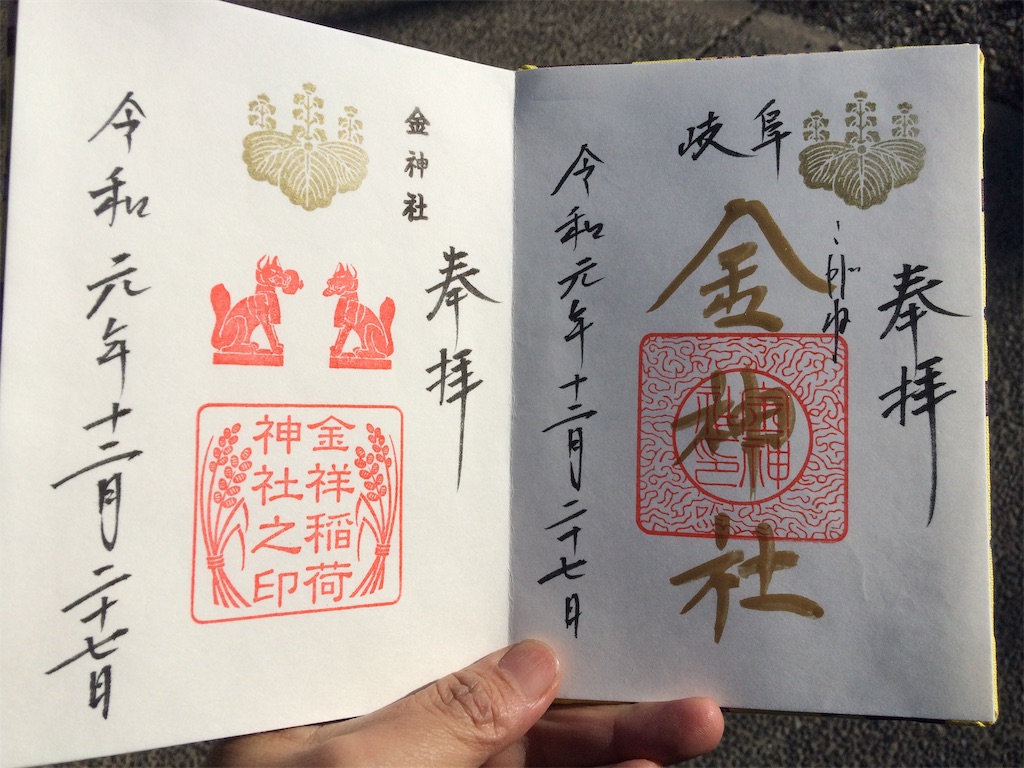 奉拝
こがね
岐阜
金神社
令和元年十二月二十七日
奉拝
金神社
金祥稲荷
神社之印
令和元年十二月二十七日